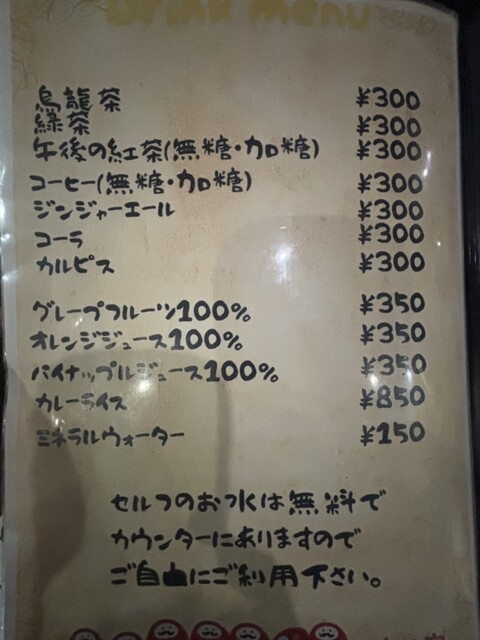 Drink Menu
烏龍茶 ¥300
緑茶 ¥300
午後の紅茶(無糖・加糖) ¥300
コーヒー(無糖・加糖) ¥300
ジンジャーエール ¥300
コーラ ¥300
カルピス ¥300
グレープフルーツ100% ¥350
オレンジジュース100% ¥350
パイナップルジュース100% ¥350
カレーライス ¥850
ミネラルウォーター ¥150
セルフのお水は無料で
カウンターにありますので
ご自由にご利用下さい。